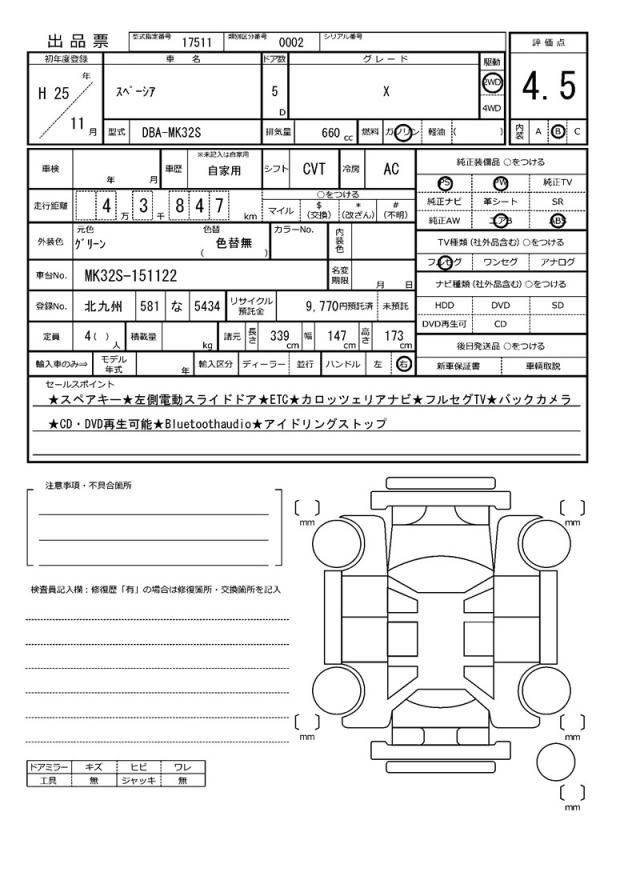 出品票 型式指定番号 17511 類別区分番号 0002 シリアル番号
初年度登録 車名 ドア数 グレード 駆動 評価点
H 25 年 11 月 スペーシア 5 D X 2WD 4WD 4.5
型式 DBA-MK32S 排気量 660 cc 燃料 ガソリン 軽油 ( ) 内装 A B C
車検 年 月 車歴 ※未記入は自家用 自家用 シフト CVT 冷房 AC 純正装備品 ○をつける
PS PW 純正TV
走行距離 4 万 3 千 8 4 7 km ○をつける マイル $ (交換) * (改ざん) # (不明) 純正ナビ 革シート SR
純正AW エアB ABS
外装色 元色 グリーン 色替 ( 色替無 ) カラーNo. 内装色 TV種類(社外品含む)○をつける
フルセグ ワンセグ アナログ
車台No. MK32S-151122 名変期限 月 日 ナビ種類(社外品含む)○をつける
登録No. 北九州 581 な 5434 リサイクル預託金 9,770円預託済 未預託 HDD DVD SD
DVD再生可 CD
定員 4( ) 人 積載量 kg 諸元 長さ 339 cm 幅 147 cm 高さ 173 cm 後日発送品 ○をつける
輸入車のみ⇒ モデル年式 年 輸入区分 ディーラー 並行 ハンドル 左 右 新車保証書 車輌取説
セールスポイント
★スペアキー★左側電動スライドドア★ETC★カロッツェリアナビ★フルセグTV★バックカメラ
★CD・DVD再生可能★Bluetoothaudio★アイドリングストップ
注意事項・不具合箇所
mm
mm
検査員記入欄：修復歴「有」の場合は修復箇所・交換箇所を記入
mm
mm
ドアミラー キズ ヒビ ワレ
工具 無 ジャッキ 無
mm